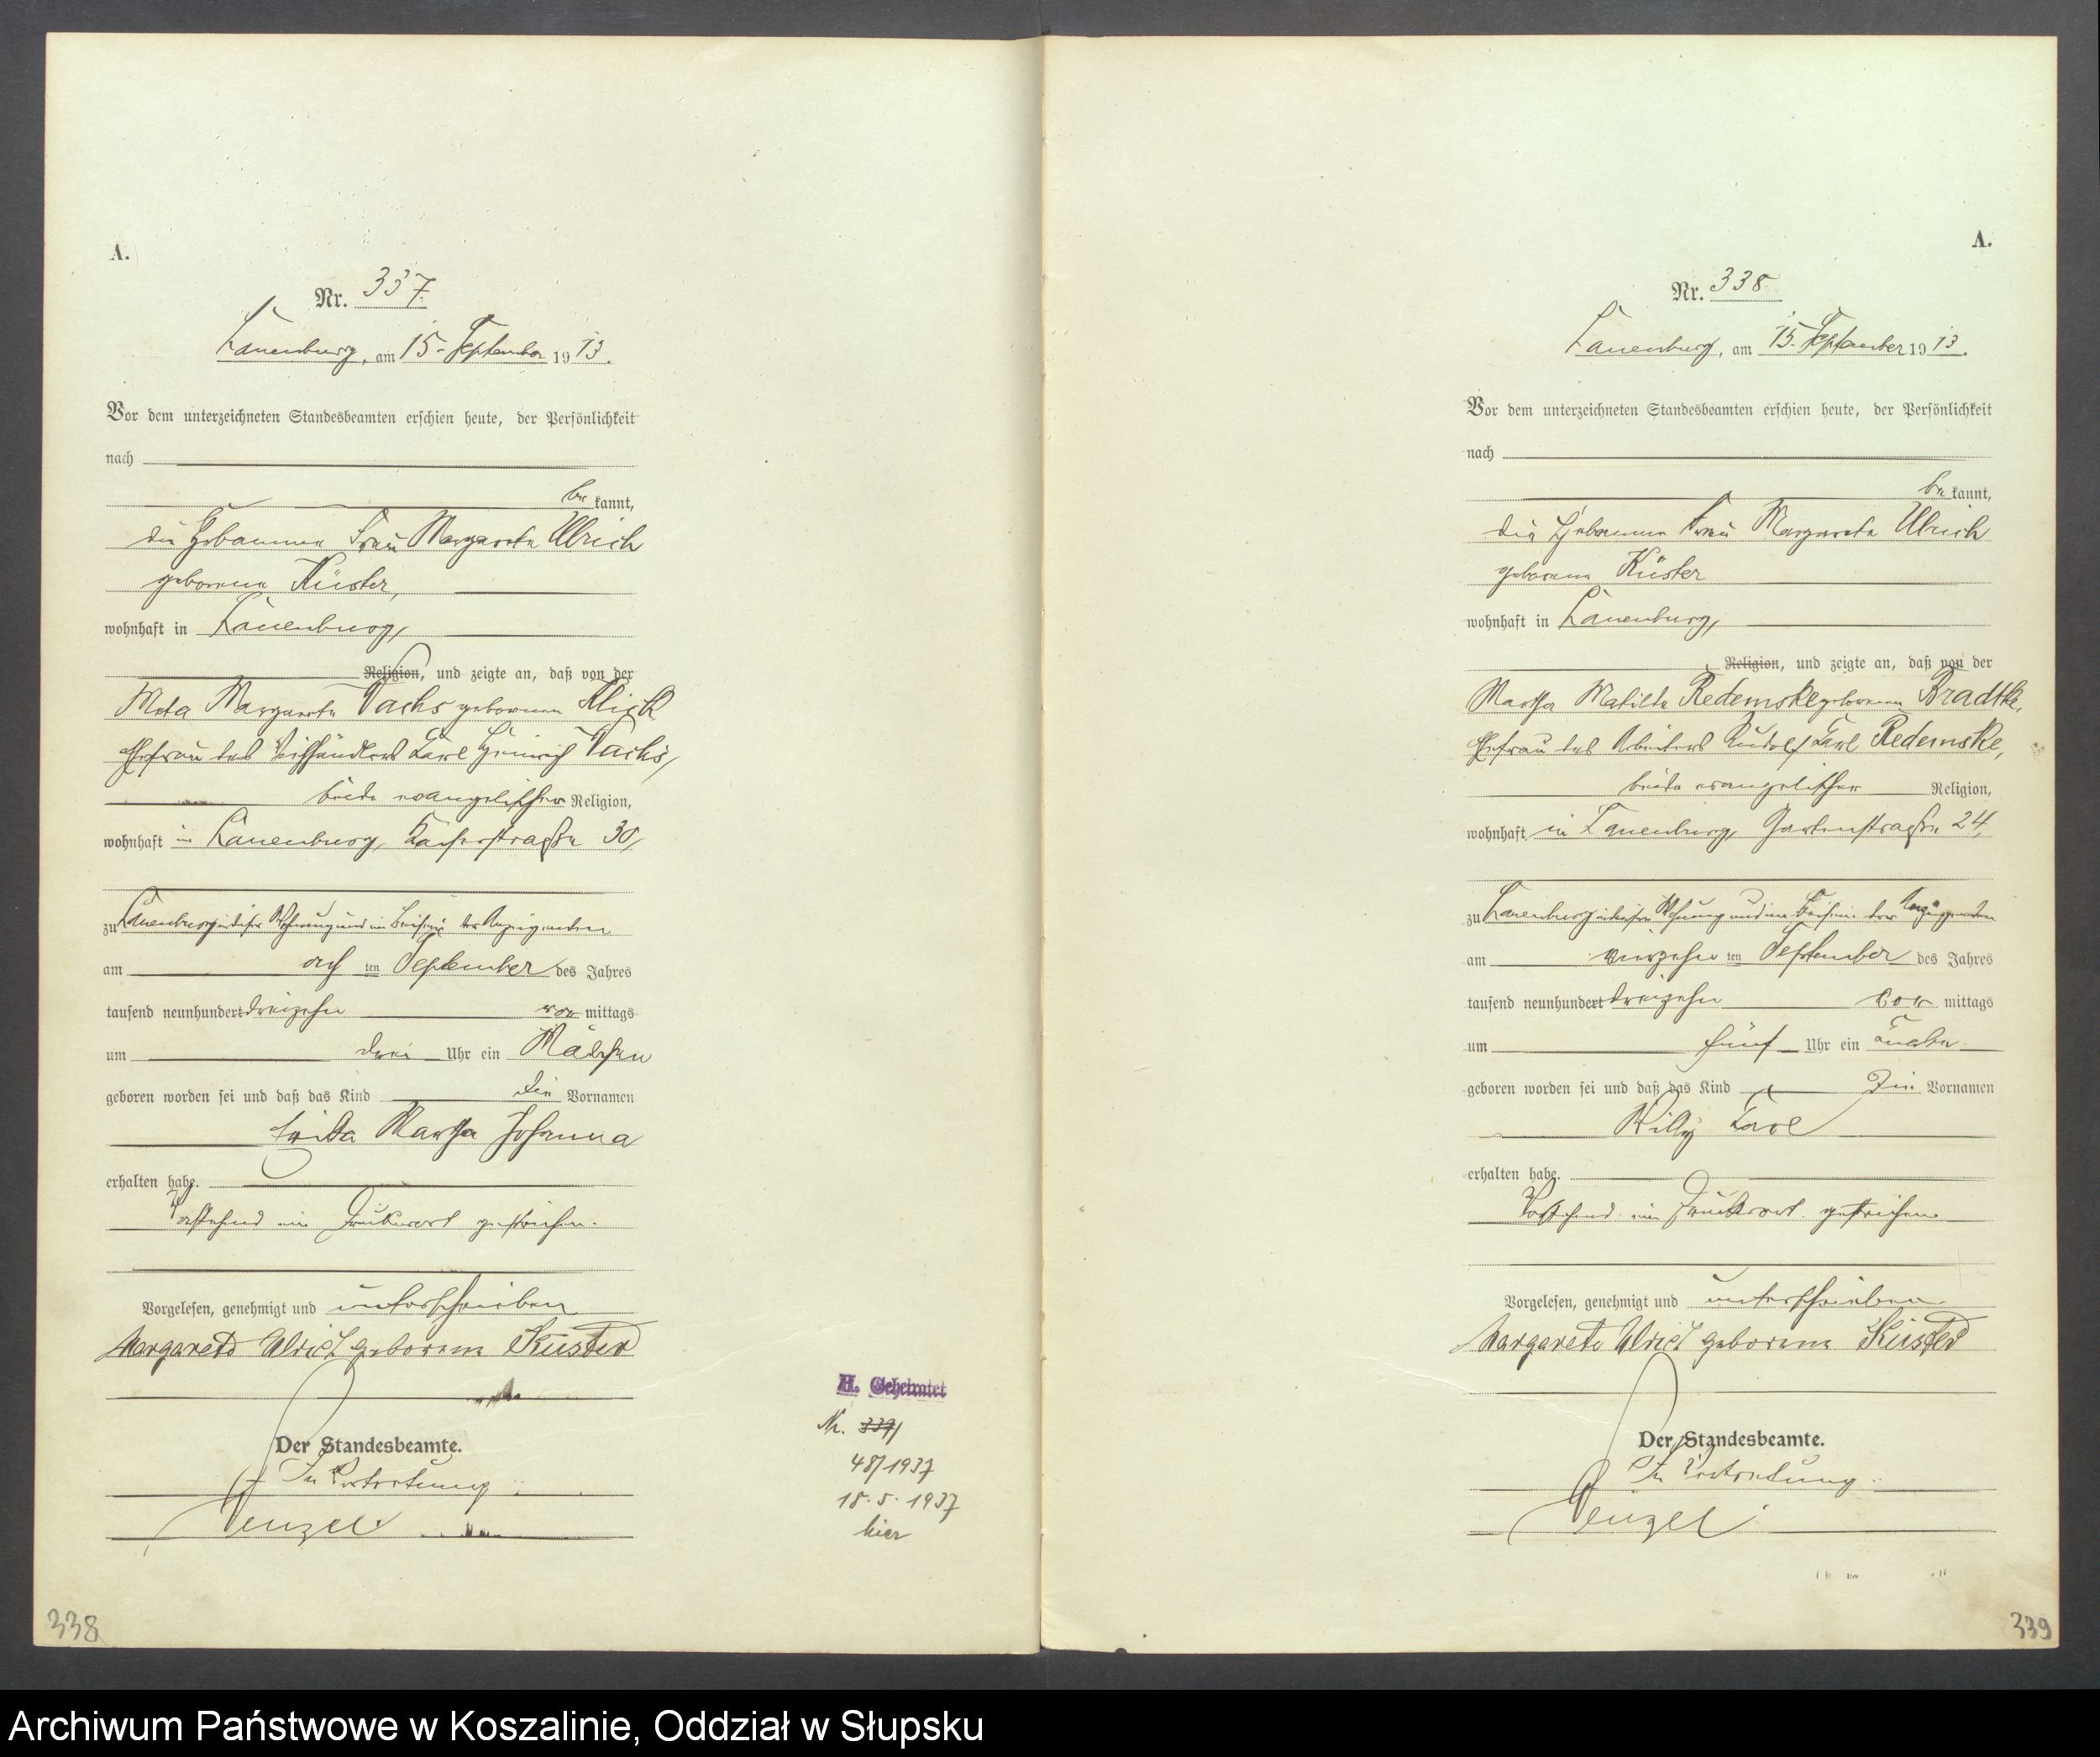 A.
Nr. 337.
Lauenburg, am 15. September 1913.
Vor dem unterzeichneten Standesbeamten erschien heute, der Persönlichkeit
nach
be kannt,
die Hebamme Frau Margarete Ulrich
geborene Küster,
wohnhaft in Lauenburg,
Religion, und zeigte an, daß von der
Meta Margarete geborenen
Ehefrau des Viehhändlers Karl Heinrich
beide evangelischer Religion,
wohnhaft in Lauenburg, 30,
zu Lauenburg in dieser Wohnung und im Beisein der Anzeigenden
am ach ten September des Jahres
tausend neunhundert dreizehn vor mittags
um drei Uhr ein Mädchen
geboren worden sei und daß das Kind die Vornamen
Frida Martha Johanna
erhalten habe.
Vorstehend ein Druckwort gestrichen.
Vorgelesen, genehmigt und unterschrieben
Margarete Ulrich geborene Küster
Der Standesbeamte.
In Vertretung
H. Geheiratet
Nr.
48/1937
18.5.1937
hier
338
A.
Nr. 338
Lauenburg, am 15. September 1913.
Vor dem unterzeichneten Standesbeamten erschien heute, der Persönlichkeit
nach
be kannt,
die Hebamme Frau Margarete Ulrich
geborene Küster
wohnhaft in Lauenburg,
Religion, und zeigte an, daß von der
Martha Matilde Redemske geborenen Bradtke,
Ehefrau des Arbeiters Rudolf Karl Redemske,
beide evangelischer Religion,
wohnhaft in Lauenburg, Gartenstraße 24,
zu Lauenburg in dieser Wohnung und im Beisein der Anzeigenden
am vierzehn ten September des Jahres
tausend neunhundert dreizehn vor mittags
um fünf Uhr ein Knabe
geboren worden sei und daß das Kind die Vornamen
Willy Karl
erhalten habe.
Vorstehend ein Druckwort gestrichen.
Vorgelesen, genehmigt und unterschrieben
Margarete Ulrich geborene Küster
Der Standesbeamte.
In Vertretung
339
Archiwum Państwowe w Koszalinie, Oddział w Słupsku